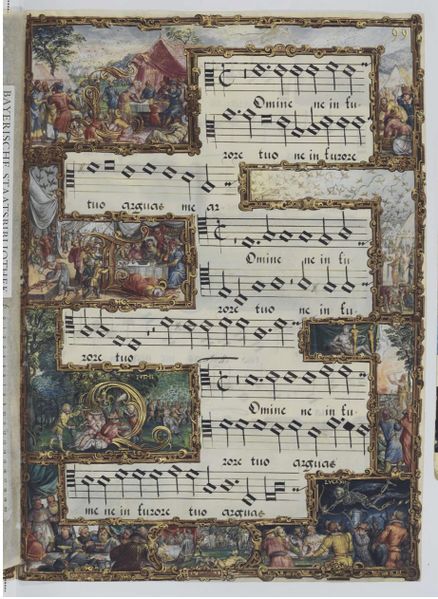 99
Omine ne in fu-
rore tuo ne in furore
tuo arguas me ar
Omine ne in fu
rore tuo ne in fu-
rore tuo
Omine ne in fu-
rore tuo arguas
me ne in furore tuo arguas
BAYERISCHE STAATSBIBLIOTHEK